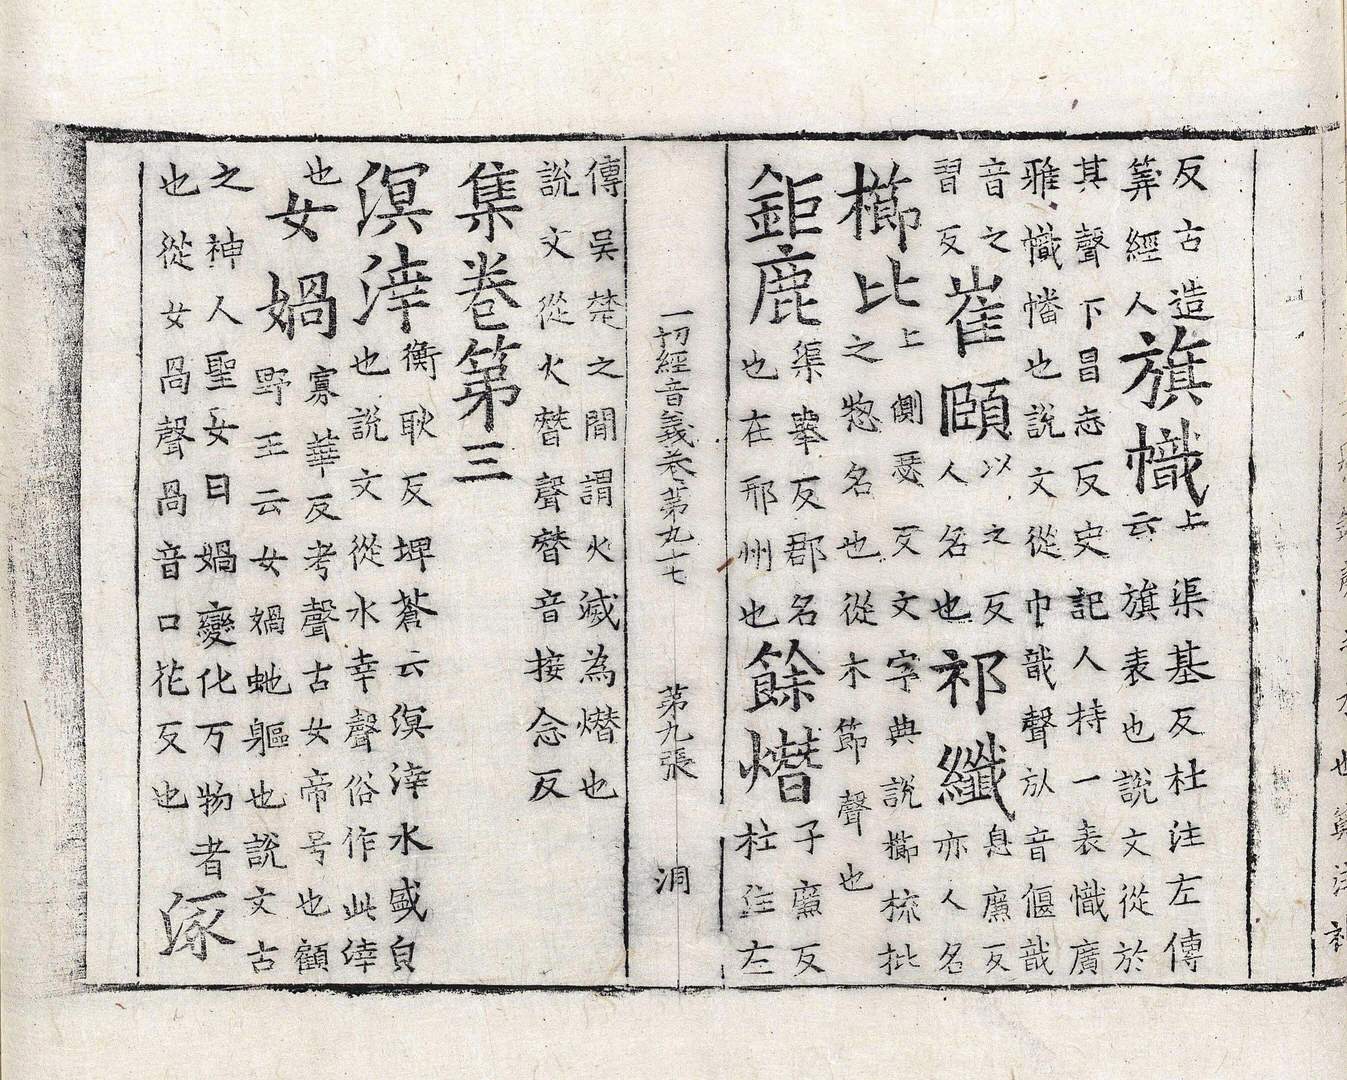 反古造
筭經人
旗幟
上渠基反杜注左傳
云旗表也說文從於
其聲下昌志反史記人持一表幟廣
雅幟幡也說文從巾戠聲㫃音偃戠
音之
習反
崔頤
以之反
人名也
祁纖
息廉反
亦人名
櫛比
上側瑟反文字典說櫛梳批
之惣名也從木節聲也
鉅鹿
渠舉反郡名
也在邢州也
餘熸
子廉反
杜注左
一切經音義卷第九十七 第九張 洞
傳吳楚之間謂火滅為熸也
說文從火朁聲朁音接念反
集卷第三
溟涬
衡耿反埤蒼云溟涬水盛皃
也說文從水幸聲俗作此涬
也
女媧
寡華反考聲古女帝号也顧
野王云女媧虵軀也說文古
之神人聖女曰媧變化万物者
也從女咼聲咼音口花反也
涿